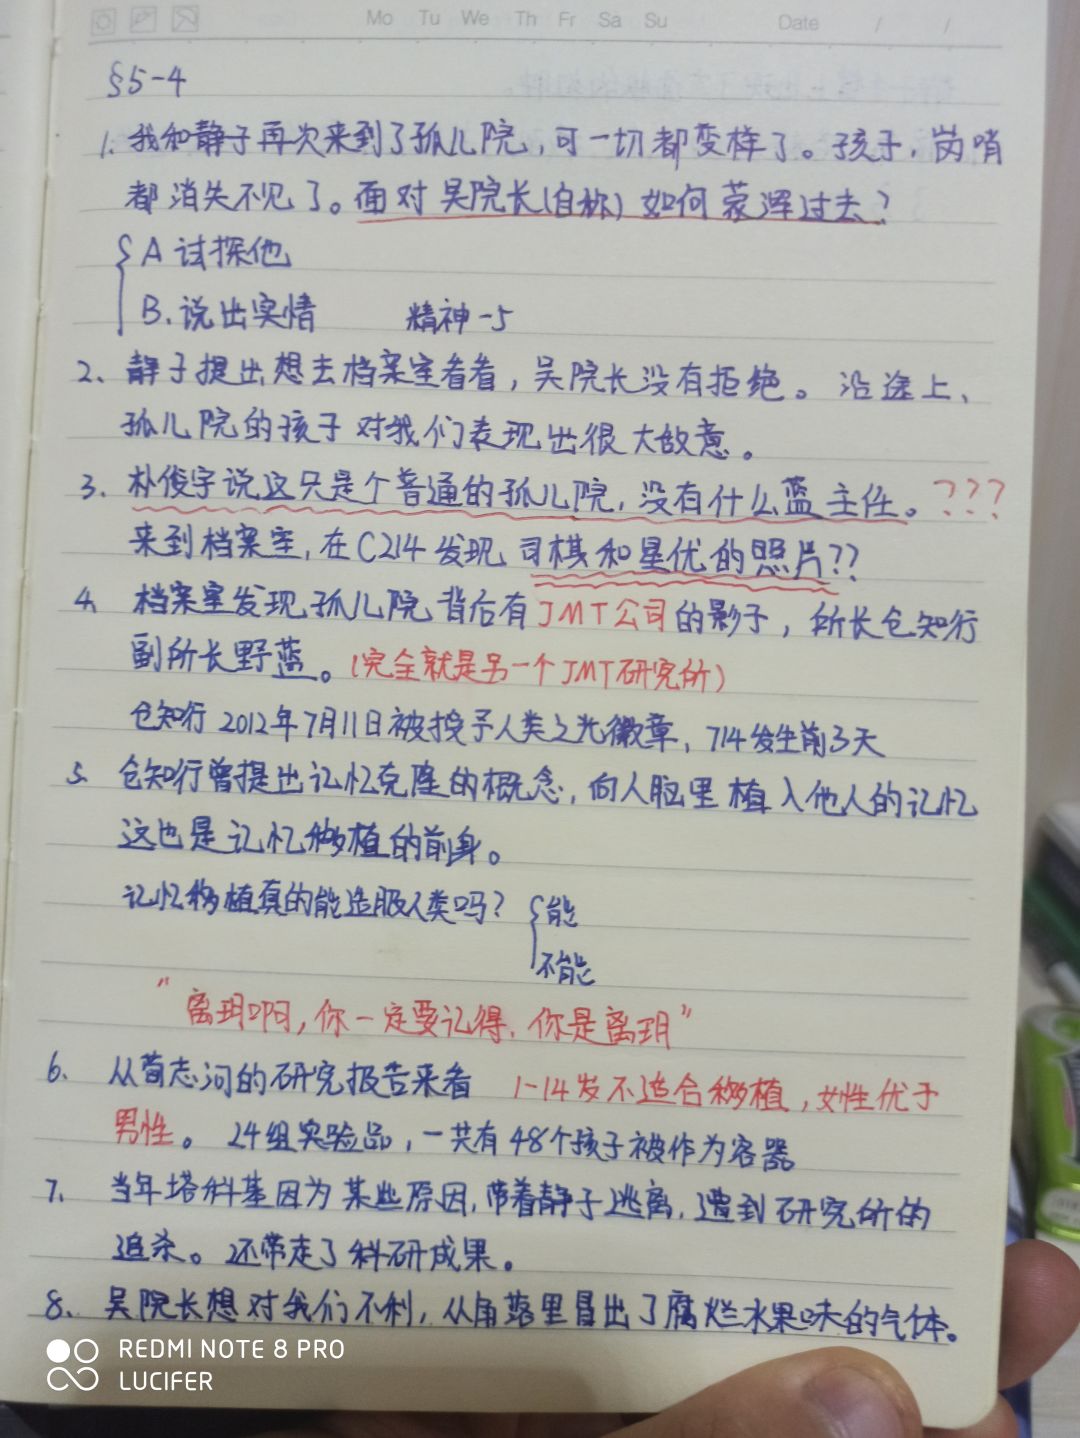 Mo Tu We Th Fr Sa Su Date / /
§5-4
1. 我和静子再次来到了孤儿院,可一切都变样了。孩子,岗哨
都消失不见了。面对吴院长(自称)如何蒙浑过去?
A 试探他
B. 说出实情 精神-5
2、静子提出想去档案室看看,吴院长没有拒绝。沿途上、
孤儿院的孩子对我们表现出很大敌意。
3、朴俊宇说这只是个普通的孤儿院,没有什么蓝主任。???
来到档案室,在C214发现司棋和星优的照片??
4 档案室发现孤儿院背后有JMT公司的影子,所长仓知行
副所长野蓝。(完全就是另一个JMT研究所)
仓知行2012年7月11日被授予人类之光徽章,714发生前3天
5、仓知行曾提出记忆克隆的概念,向人脑里植入他人的记忆
这也是记忆移植的前身。
记忆移植真的能造服人类吗? 能
不能
"离玥啊,你一定要记得,你是离玥"
6、从荀志河的研究报告来看 1-14岁不适合移植,女性优于
男性。24组实验品,一共有48个孩子被作为容器
7、当年塔科基因为某些原因,带着静子逃离,遭到研究所的
追杀。还带走了科研成果。
8、吴院长想对我们不利,从角落里冒出了腐烂水果味的气体。
REDMI NOTE 8 PRO
LUCIFER